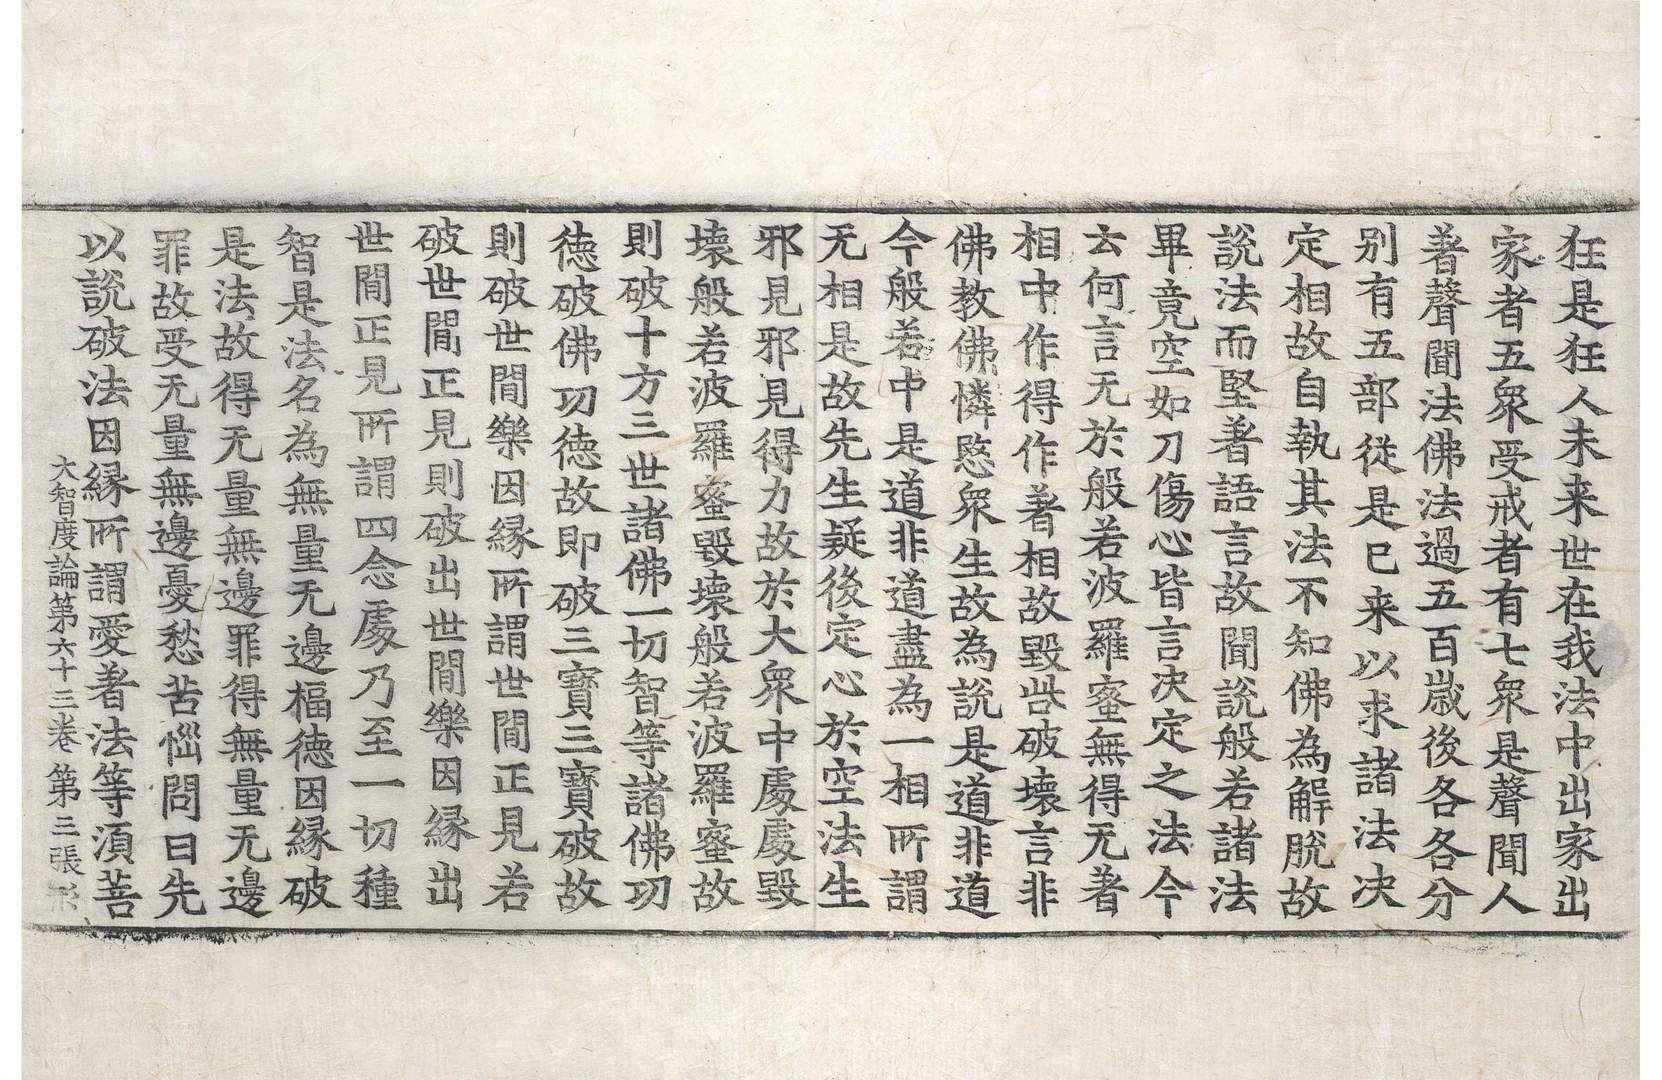 狂是狂人未来世在我法中出家出
家者五衆受戒者有七衆是聲聞人
著聲聞法佛法過五百歲後各各分
别有五部從是已来以求諸法决
定相故自執其法不知佛為解脫故
說法而堅著語言故聞說般若諸法
畢竟空如刀傷心皆言决定之法今
云何言无於般若波羅蜜無得无著
相中作得作著相故毀呰破壞言非
佛教佛憐愍衆生故為說是道非道
今般若中是道非道盡為一相所謂
无相是故先生疑後定心於空法生
邪見邪見得力故於大衆中處處毀
壞般若波羅蜜毀壞般若波羅蜜故
則破十方三世諸佛一切智等諸佛功
德破佛功德故即破三寶三寶破故
則破世間樂因緣所謂世間正見若
破世間正見則破出世間樂因緣出
世間正見所謂四念處乃至一切種
智是法名為無量无邊福德因緣破
是法故得无量無邊罪得無量无邊
罪故受无量無邊憂愁苦惱問曰先
以說破法因緣所謂愛著法等湏菩
大智度論第六十三卷 第三張